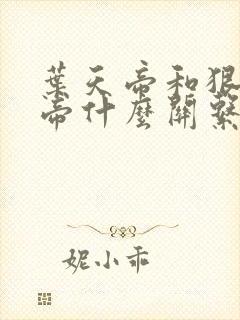 葉天帝和狠
帝什麼關繫
妮小乖